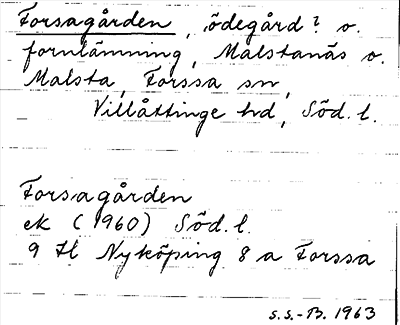 Forsagården, ödegård? o.
fornlämning, Malstanäs o.
Malsta, Forssa sn,
Villåttinge hd, Söd. l.
Forsagården
ek (1960) Söd. l.
9 H Nyköping 8 a Forssa
S.S.-B. 1963